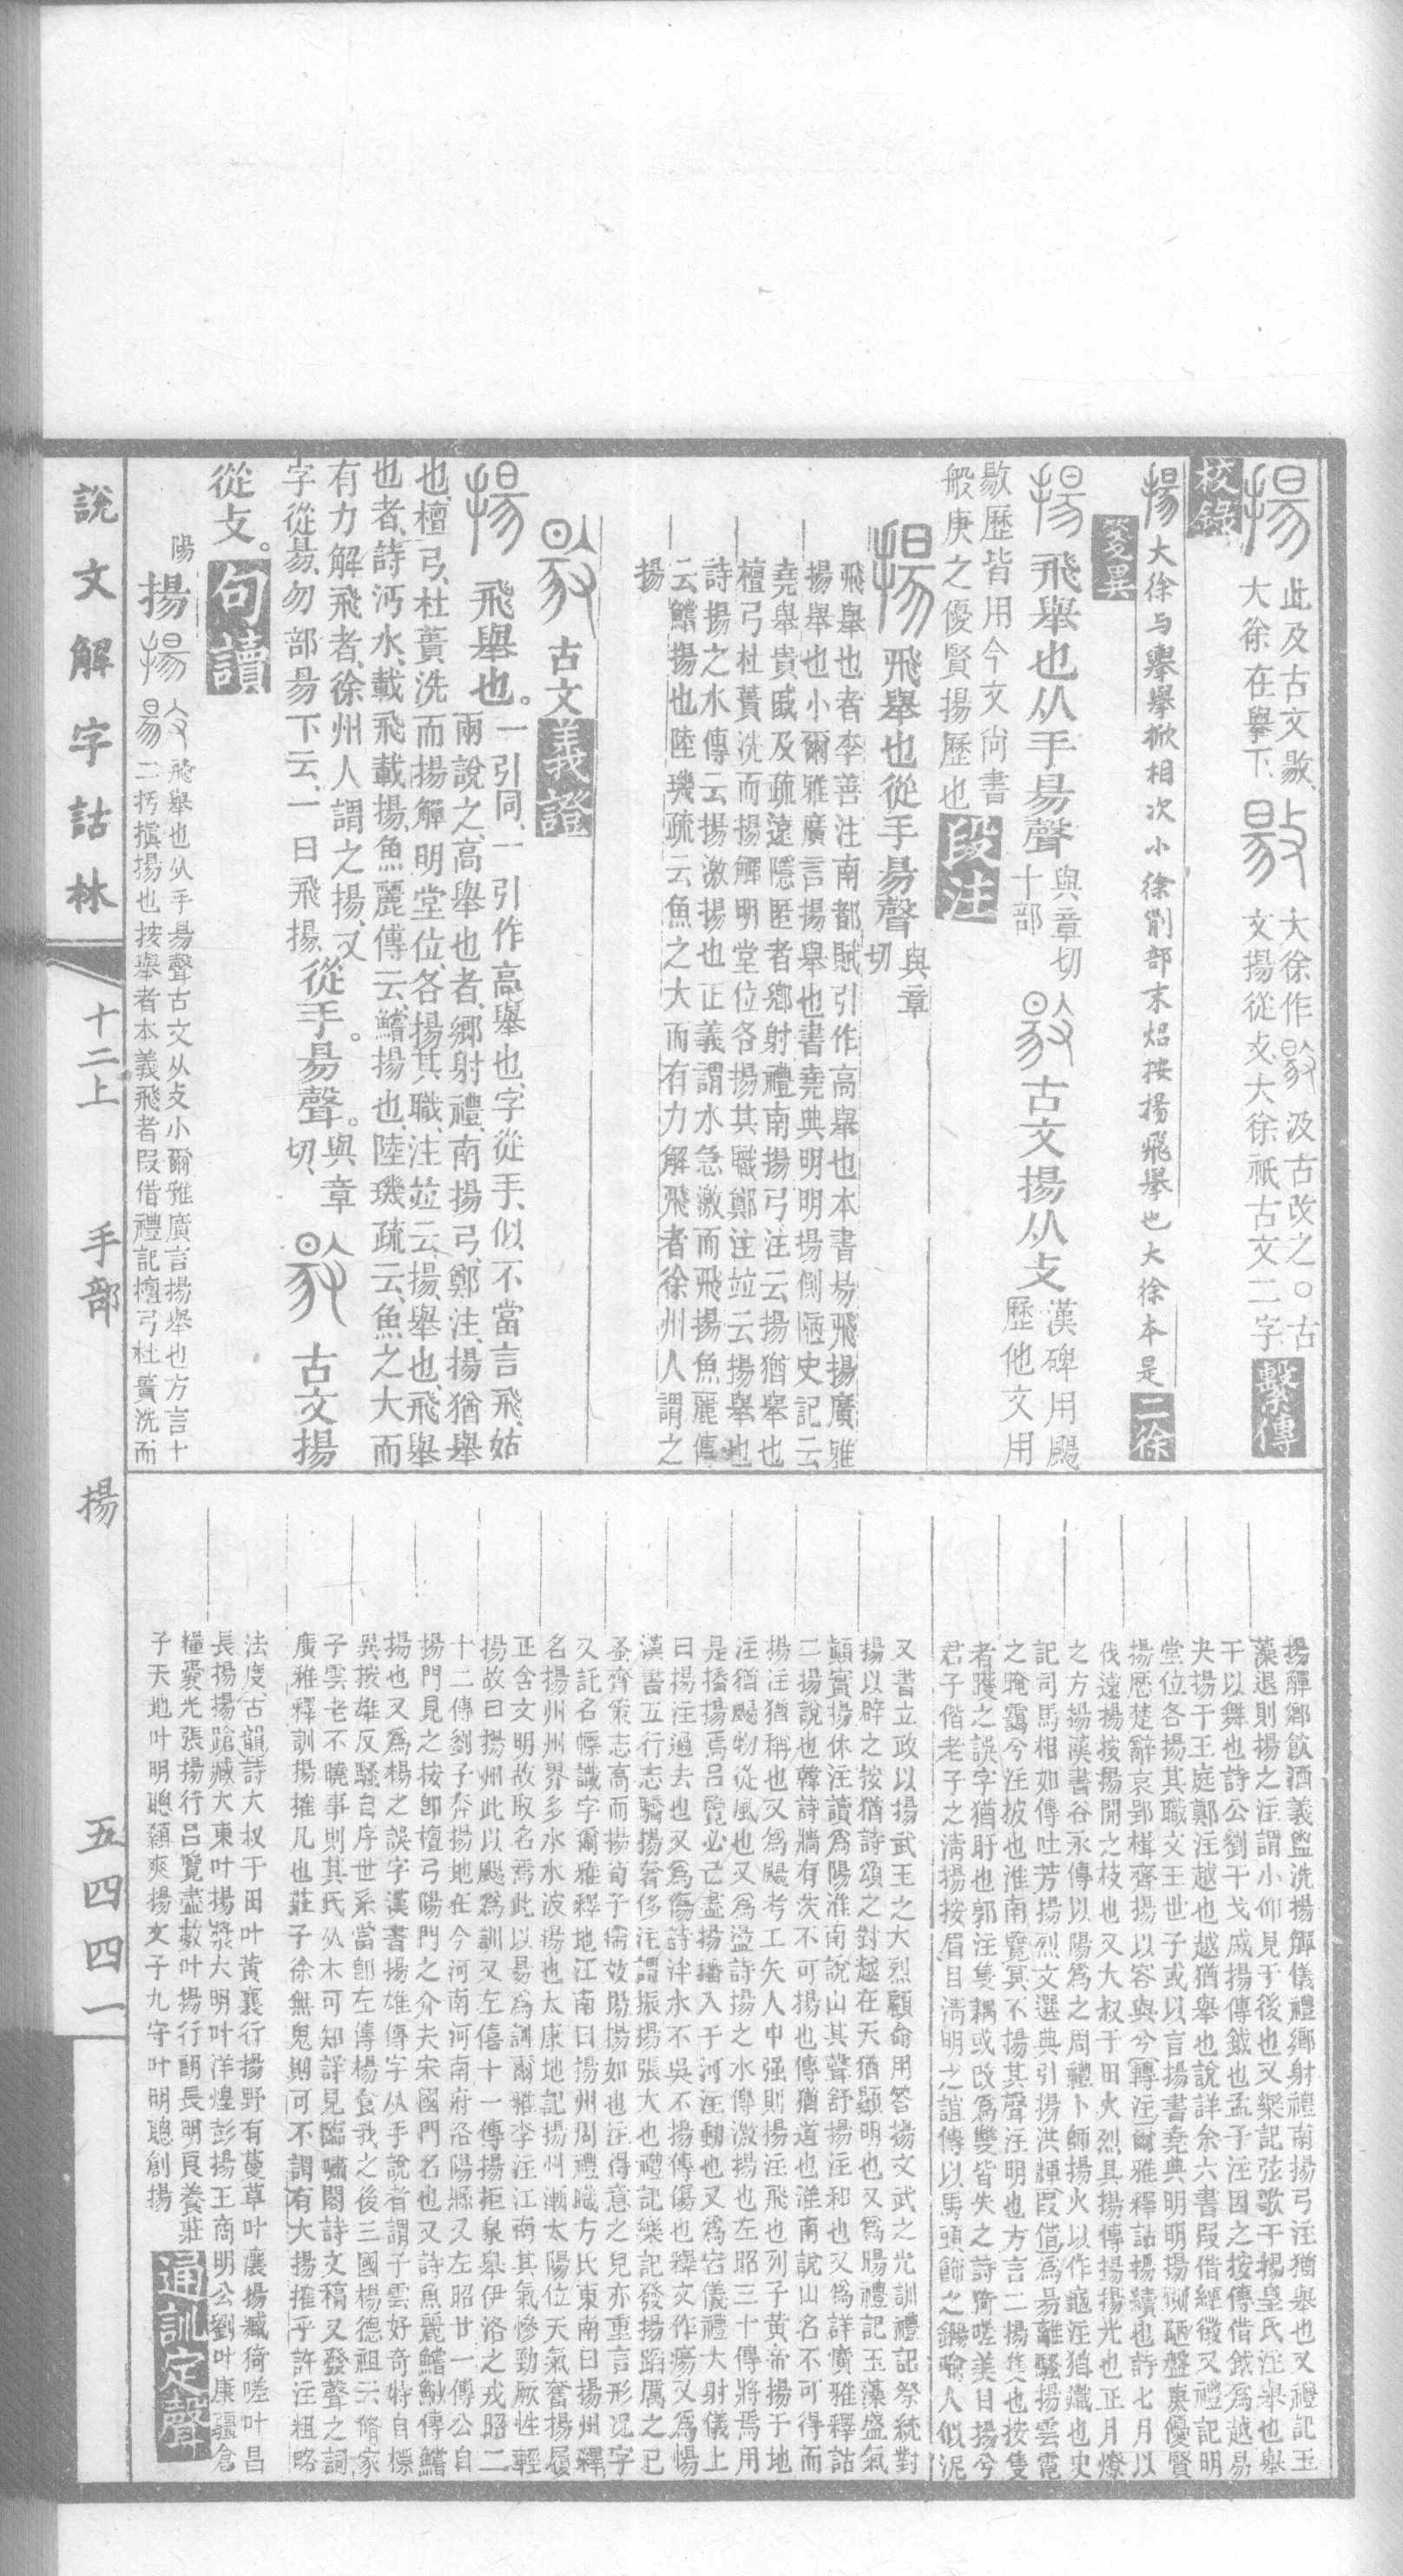 揚
此及古文敭
大徐在擧下
大徐作𢾭汲古改之○古
文揚從攴大徐祇古文二字
繫傳
校錄
揚大徐与擧舉掀相次小徐劗部末炤按揚飛擧也大徐本是
二徐
箋異
揚飛舉也从手昜聲
與章切
十部
古文揚从攴
漢碑用颺
歷他文用
敭歷皆用今文尙書
般庚之優賢揚歷也
段注
揚飛舉也從手昜聲
與章
切
飛舉也者李善注南都賦引作高舉也本書昜飛揚廣雅
揚舉也小爾雅廣言揚舉也書堯典明明揚側陋史記云
堯舉貴戚及疏遠隱匿者鄉射禮南揚弓注云揚猶舉也
檀弓杜蕢洗而揚觶明堂位各揚其職鄭注竝云揚舉也
詩揚之水傳云揚激揚也正義謂水急激而飛揚魚麗傳
云鱨揚也陸璣疏云魚之大而有力解飛者徐州人謂之
揚
古文
義證
揚飛舉也。
一引同、一引作高舉也、字從手、似不當言飛、姑
兩說之、高舉也者、鄉射禮、南揚弓、鄭注、揚猶舉
也、檀弓、杜蕢洗而揚觶、明堂位、各揚其職、注竝云、揚、舉也、飛舉
也者、詩沔水、載飛載揚、魚麗傳云、鱨、揚也、陸璣疏云、魚之大而
有力解飛者、徐州人謂之揚、又
字從昜、勿部昜下云、一曰飛揚、從手。昜聲。
與章
切、
古文揚
從攴。
句讀
陽
揚
飛舉也从手昜聲古文从攴小爾雅廣言揚舉也方言十
二㧑擯揚也按舉者本義飛者叚借禮記檀弓杜蕢洗而
揚觶鄉飮酒義盥洗揚觶儀禮鄉射禮南揚弓注猶舉也又禮記玉
藻退則揚之注謂小仰見于後也又樂記弦歌干揚皇氏注舉也舉
干以舞也詩公劉干戈戚揚傳鉞也孟子注因之按傳借鉞爲越易
夬揚于王庭鄭注越也越猶舉也說詳余六書叚借經徵又禮記明
堂位各揚其職文王世子或以言揚書堯典明明揚側陋盤庚優賢
揚歷楚辭哀郢楫齊揚以容與兮轉注爾雅釋詁揚續也詩七月以
伐遠揚按揚開之枝也又大叔于田火烈具揚傳揚揚光也正月燎
之方揚漢書谷永傳以陽爲之周禮卜師揚火以作龜注猶熾也史
記司馬相如傳吐芳揚烈文選典引揚洪輝叚借爲昜離騷揚雲霓
之晻靄兮注披也淮南覽冥不揚其聲注明也方言二揚雙也按隻
者矆之誤字猶盱也郭注隻耦或改爲雙皆失之詩猗嗟美目揚兮
君子偕老子之淸揚按眉目淸明之誼傳以馬頭飾之鍚喻人似泥
又書立政以揚武王之大烈顧命用答揚文武之光訓禮記祭統對
揚以辟之按猶詩頌之對越在天猶顯明也又爲暘禮記玉藻盛氣
顚實揚休注讀爲陽淮南說山其聲舒揚注和也又爲詳廣雅釋詁
二揚說也韓詩牆有茨不可揚也傳猶道也淮南說山名不可得而
揚注猶稱也又爲颺考工矢人中强則揚注飛也列子黃帝揚于地
注猶颺物從風也又爲盪詩揚之水傳激揚也左昭三十傳將焉用
是播揚焉呂覽必己盡揚播入于河注動也又爲宕儀禮大射儀上
曰揚注過去也又爲傷詩泮水不吳不揚傳傷也釋文作瘍又爲愓
漢書五行志驕揚奢侈注謂振揚張大也禮記樂記發揚蹈厲之已
蚤齊策志高而揚荀子儒效揚揚如也注得意之皃亦重言形况字
又託名幖識字爾雅釋地江南曰揚州周禮職方氏東南曰揚州釋
名揚州州界多水水波揚也太康地記揚州漸太陽位天氣奮揚履
正含文明故取名焉此以昜爲訓爾雅李注江南其氣慘勁厥性輕
揚故曰揚州此以颺爲訓又左僖十一傳揚拒泉皋伊洛之戎昭二
十二傳劉子奔揚地在今河南河南府洛陽縣又左昭廿一傳公自
揚門見之按卽檀弓陽門之介夫宋國門名也又詩魚麗鱨鯊傳鱨
揚也又爲楊之誤字漢書揚雄傳字从手說者謂子雲好奇特自標
異按雄反騷自序世系當卽左傳楊食我之後三國楊德祖云脩家
子雲老不曉事則其氏从木可知詳見臨嘯閣詩文稿又發聲之詞
廣雅釋訓揚搉凡也莊子徐無鬼則可不謂有大揚搉乎許注粗略
法度古韻詩大叔于田叶黃襄行揚野有蔓草叶瀼揚臧猗嗟叶昌
長揚揚蹌臧大東叶揚漿大明叶洋煌彭揚王商明公劉叶康疆倉
糧囊光張揚行呂覽盡數叶揚行朗長明良養莊
子天地叶明聰顙爽揚文子九守叶明聰創揚
通訓定聲
說文解字詁林
十二上
手部
揚
五四四一